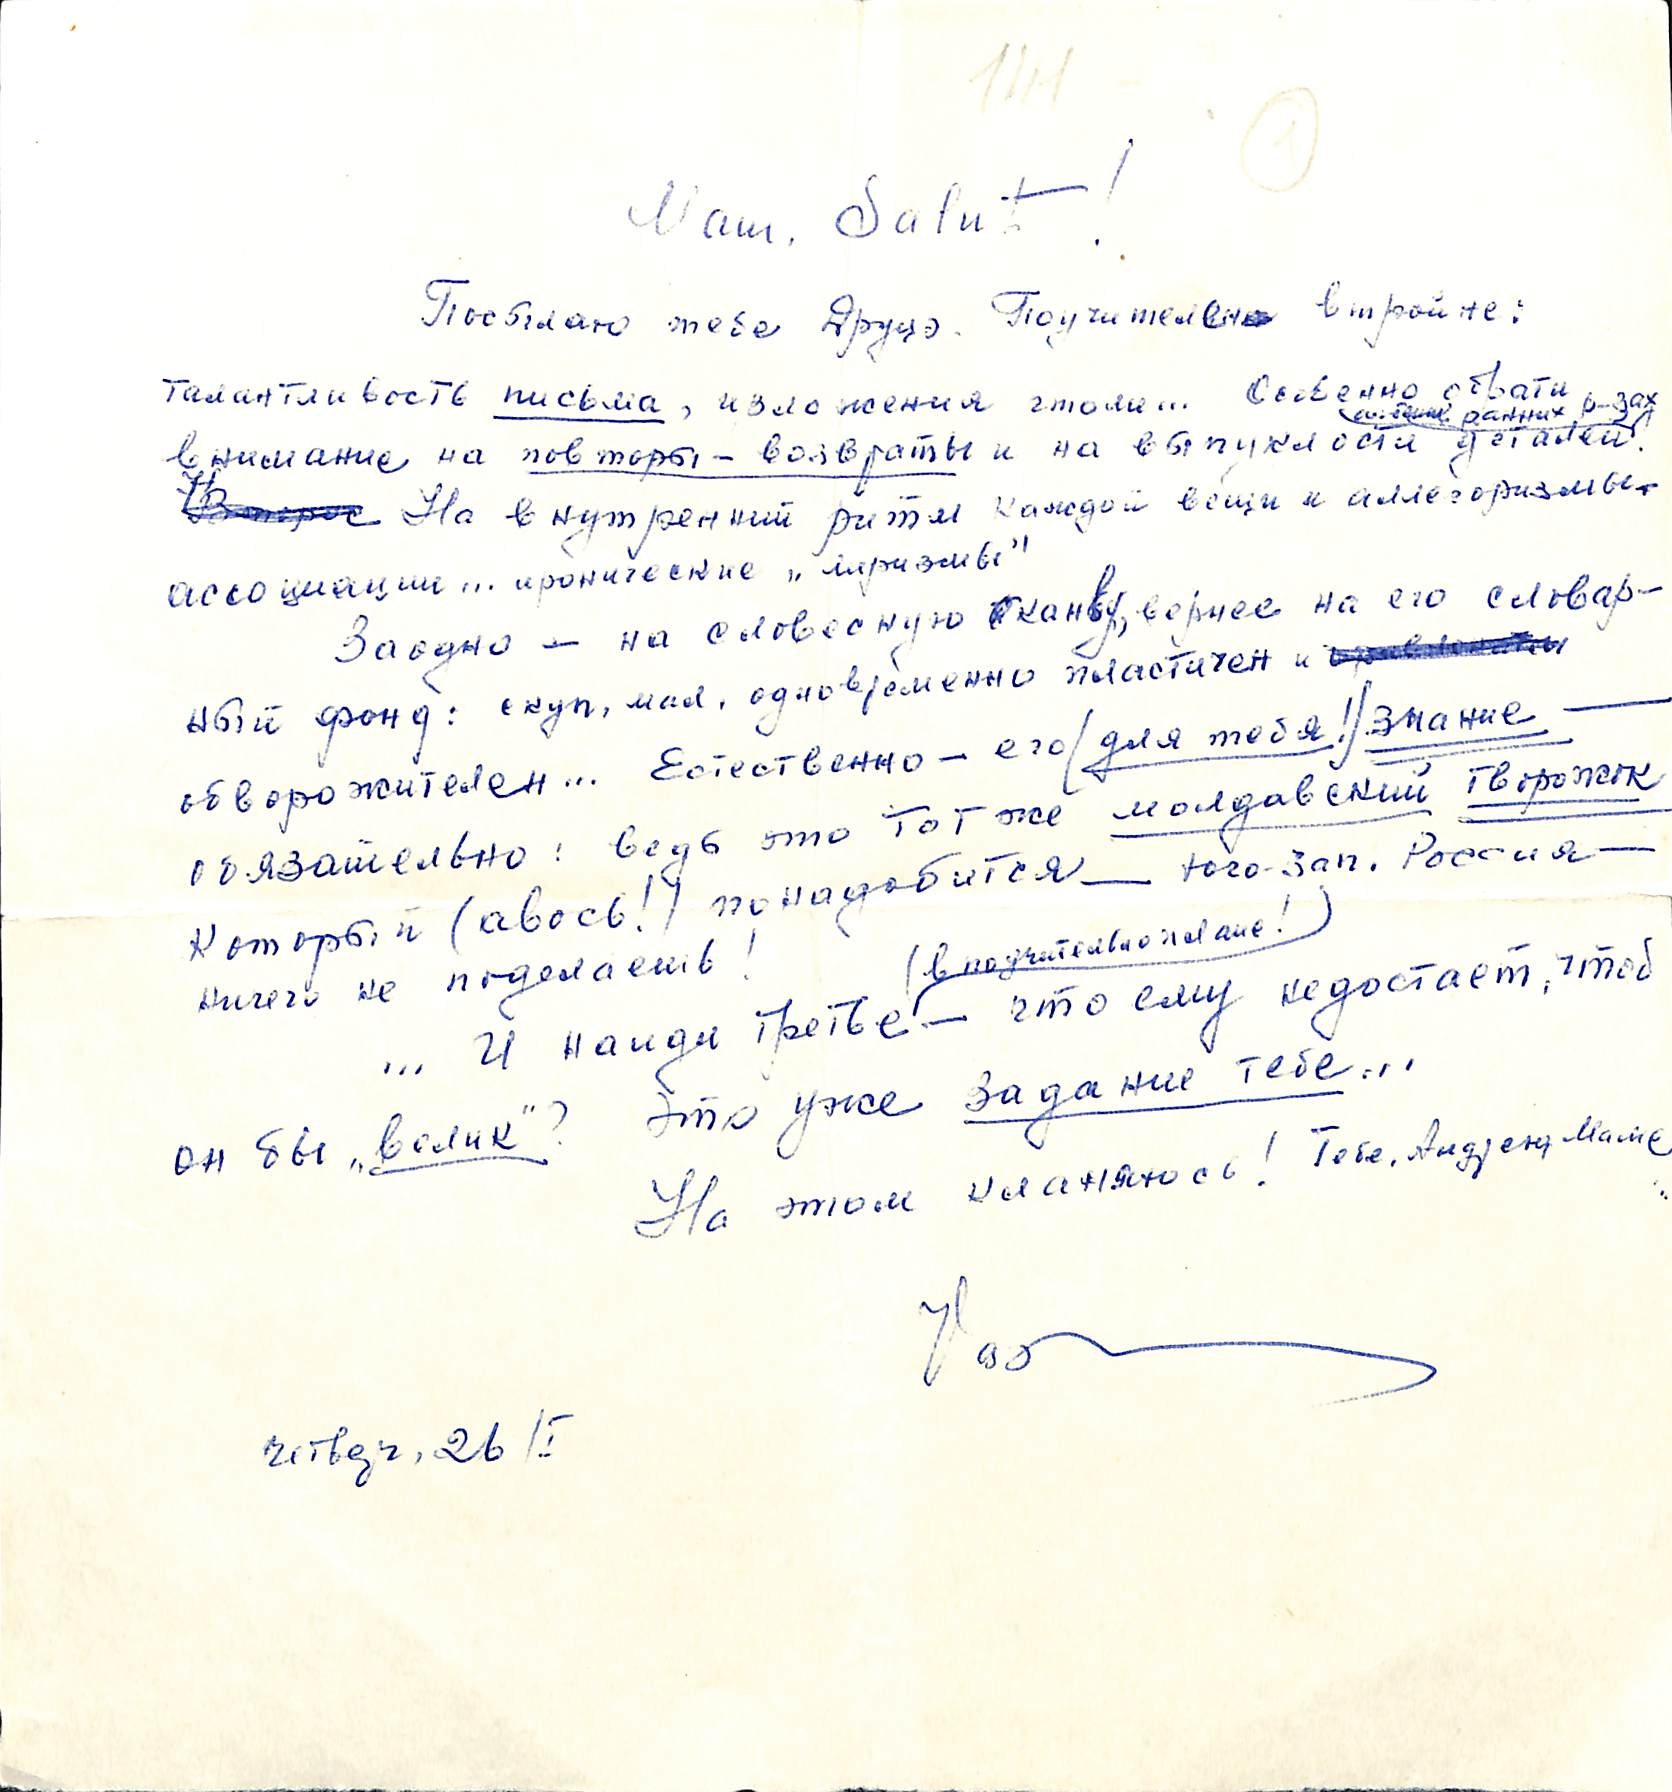 1
Salut!
Посылаю тебе Друцэ. Поучительно втройне:
талантливость письма, изложения чтоли... Особенно обрати
ранних р-зах
внимание на повторы – возвраты и на выпуклости деталей!
На внутренний ритм каждой вещи и аллегоризмы-
ассоциации... иронические
Заодно – на словесную канву, вернее на его словар-
ный фонд: скуп, мал, одновременно пластичен и
обворожителен... Естественно – его (для тебя!) знание —
обязательно: ведь это тот же молдавский творожок
который (авось!) понадобится — юго-зап. Россия —
ничего не поделаешь!
(в поучительно плане!)
... И найди третье – что ему недостает, чтоб
он бы „велик"? Это уже задание тебе...
На этом кланяюсь! Тебе, Андрею, Маме
четверг, 26/I